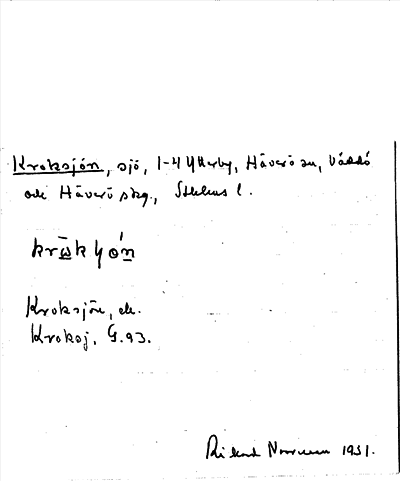 Kroksjön, sjö, 1-4 Ytterby, Häverö sn, Väddö
och Häverö skg., Sthlms l.
krωkyón
Kroksjön, ek.
Kroksj. G.93.
Rikard 1931.